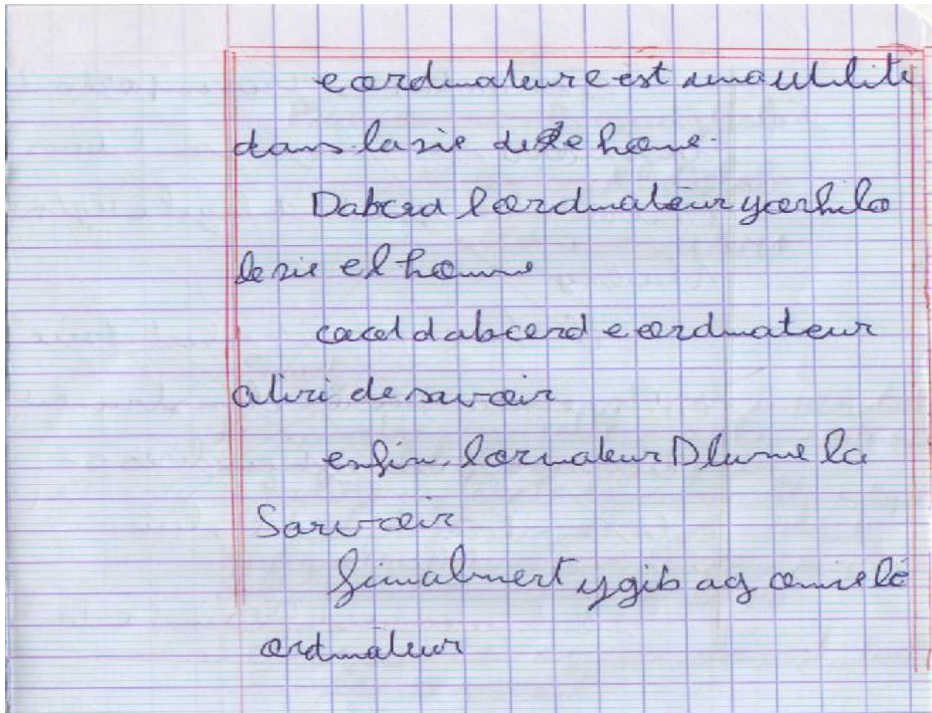 eordinateure est una utlite
dans la vie de le home.
Dabord l'ordinateur
de vie el homme
dabcord e ordinateur
de savoir
enfin. lornateur D lume la
Savoir
finalment
ordinateur